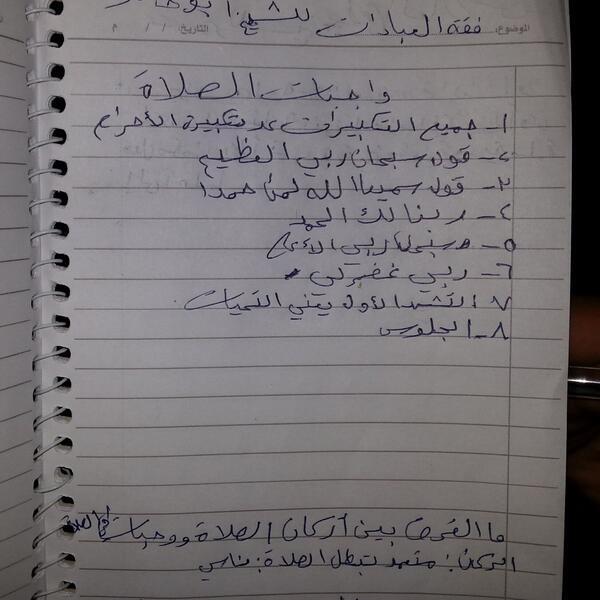 الموضوع: التاريخ: / / م
فقه العبادات
واجبات الصلاة
١- جميع التكبيرات عد تكبيرة الأحرام
٢- قول سبحان ربي العظيم
٣- قول سميع الله لمن حمدا
٤- ربنا لك الحمد
٥- سبحان ربي الأعلى
٦- ربي غفرتي
٧- التشهد الأول يعني التحيات
٨- الجلوس
ما الفرق بين أركان الصلاة ووجبات الصلاة
الركن: متعمد تبطل الصلاة: ناسي